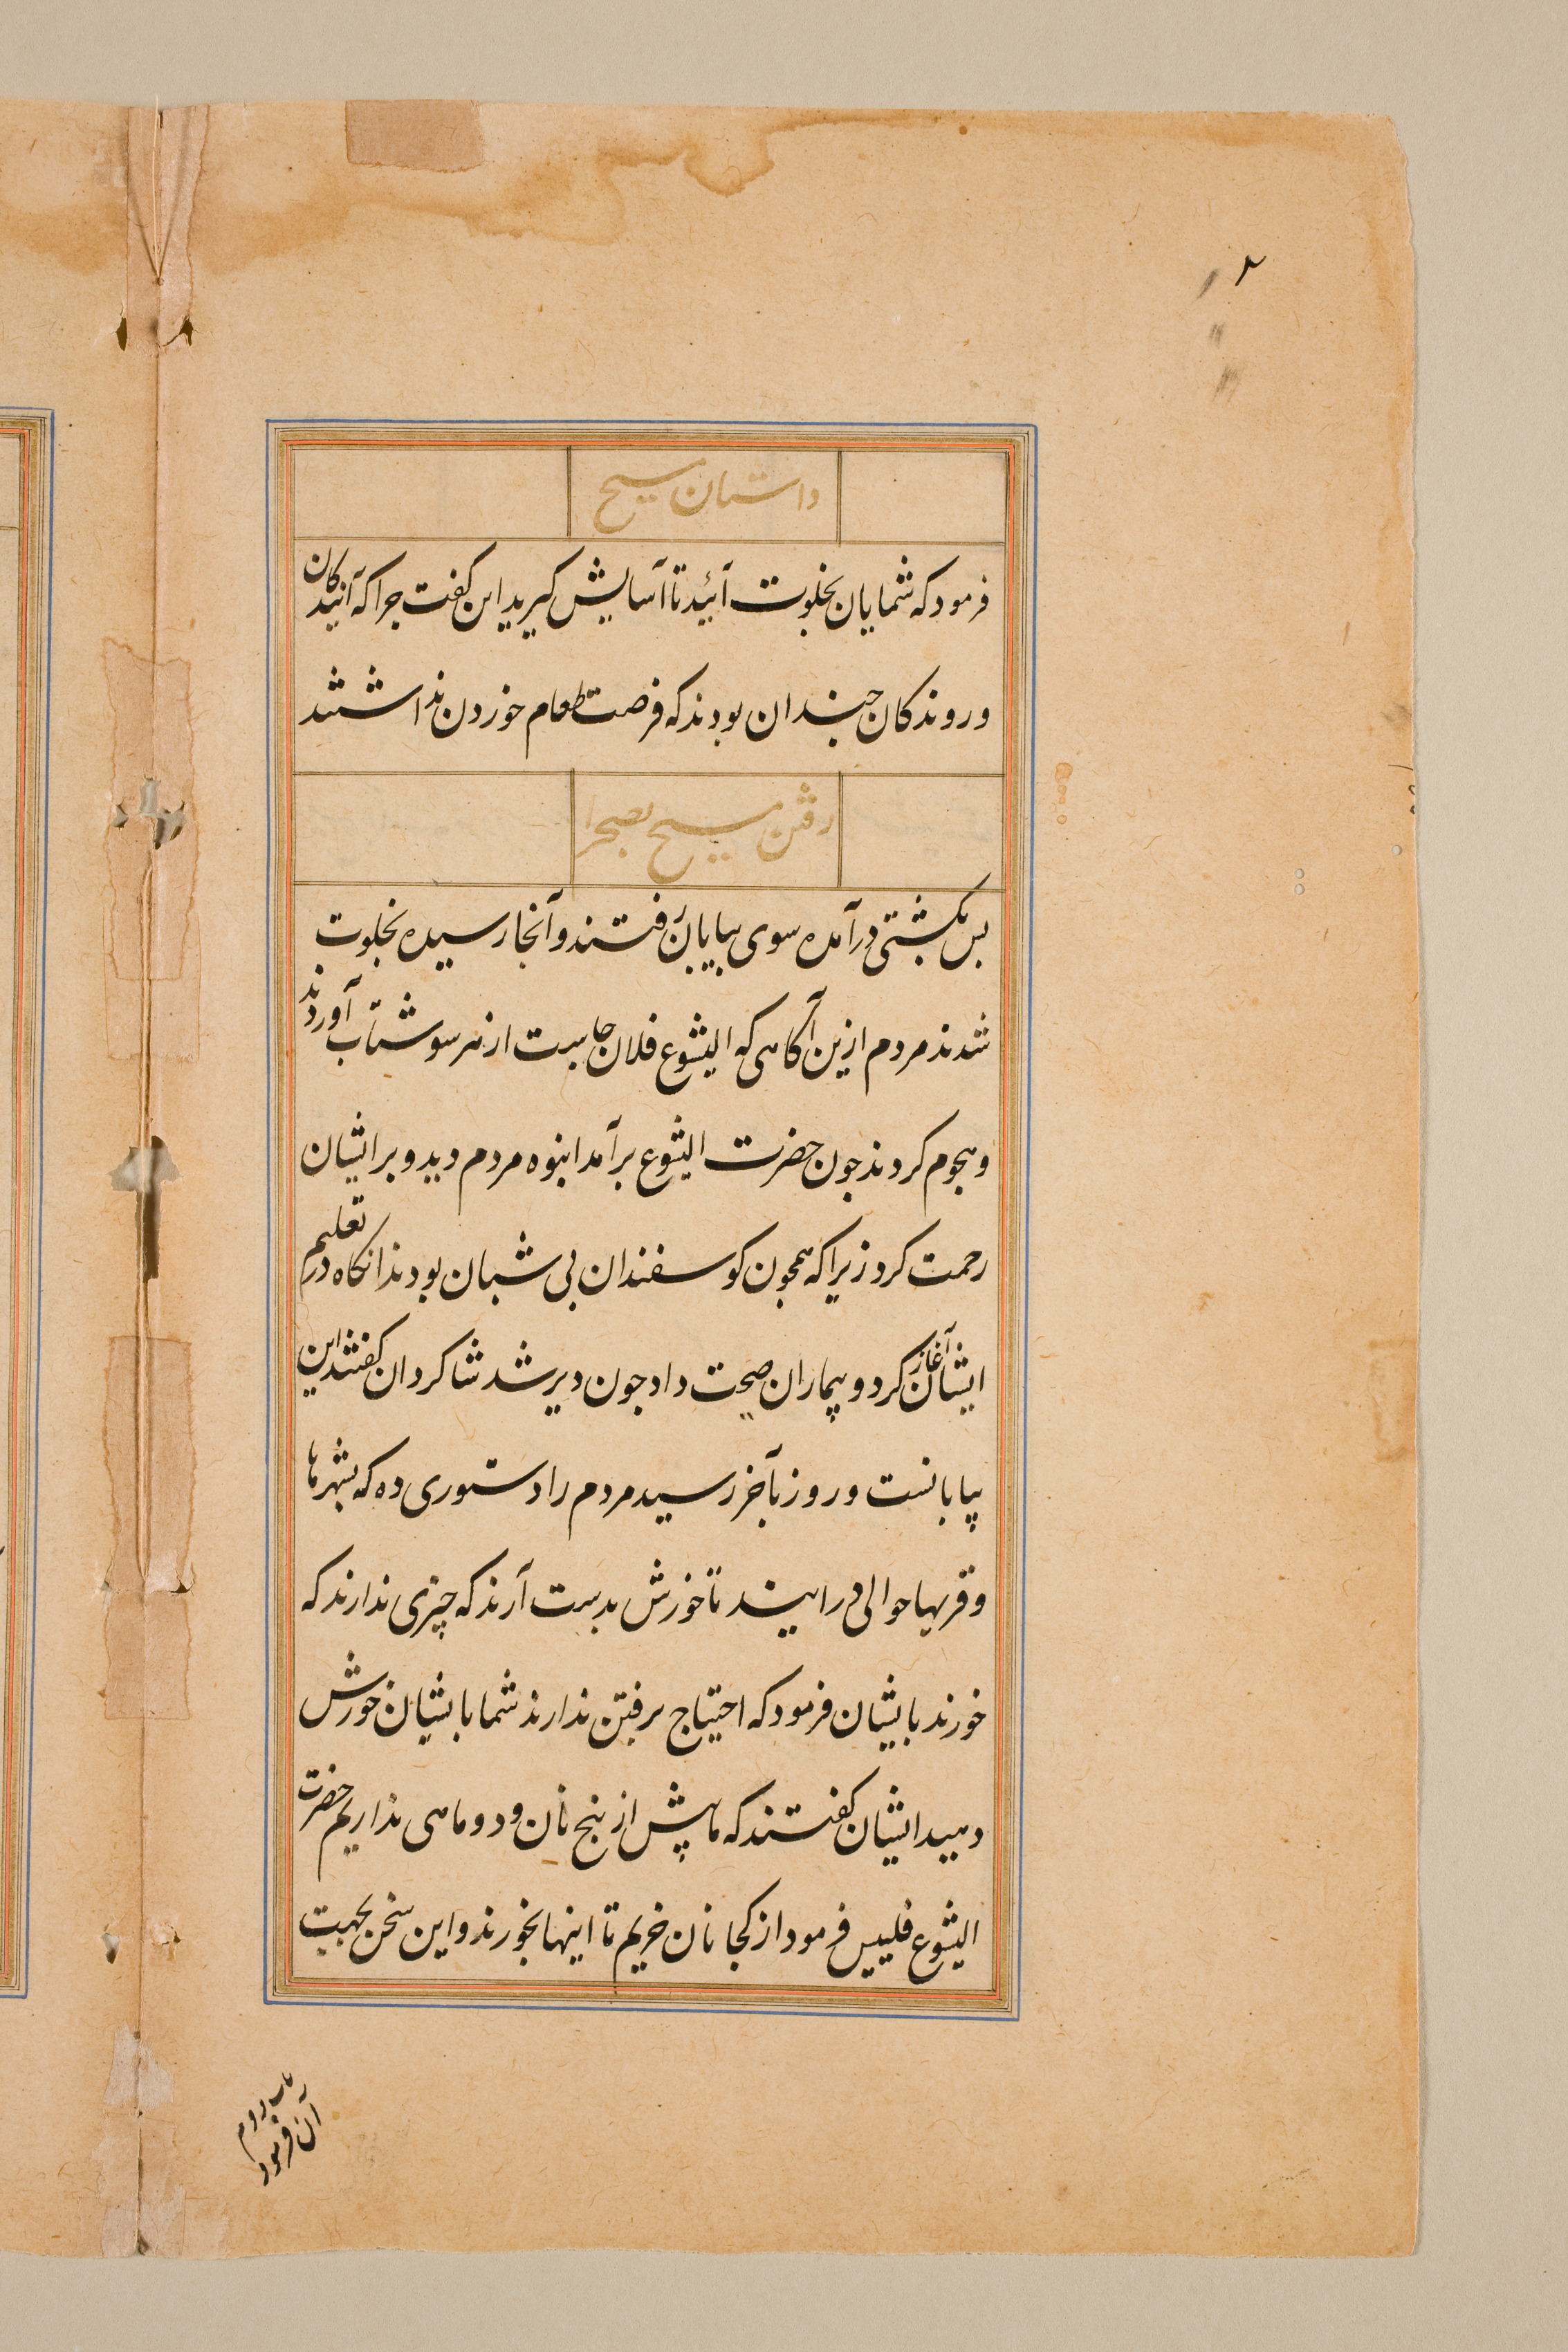 داستان مسیح
فرمود که شمایان بخلوت آئید تا آسایش کیرید این کفت جرا که آیندکان
و روندکان جندان بودند که فرصت طعام خوردن نداشتند
رفتن مسیح بصحرا
بس بکشتی درآمده سوی بیابان رفتند و آنجا رسیده بخلوت
شدند مردم ازین آکاهی که الیشوع فلان جاست از هر سو شتاب آوردند
و هجوم کردند جون حضرت الیشوع برآمد انبوه مردم دید و بر ایشان
رحمت کرد زیرا که همجون کوسفندان بی شبان بودند انکاه در تعلیم
ایشان آغاز کرد و بیماران صحت داد جون دیر شد شاکردان کفتند این
بیابانست و روز بآخر رسید مردم را دستوری ده که بشهرها
و قریها حوالی درایند تا خورش بدست آرند که چیزی ندارند که
خورند بایشان فرمود که احتیاج برفتن ندارند شما بایشان خورش
دهید ایشان کفتند که ما بیش از بنج نان و دو ماهی نداریم حضرت
الیشوع فلیپس فرمود از کجا نان خریم تا اینها بخورند و این سخن بجهت
آن فرمود